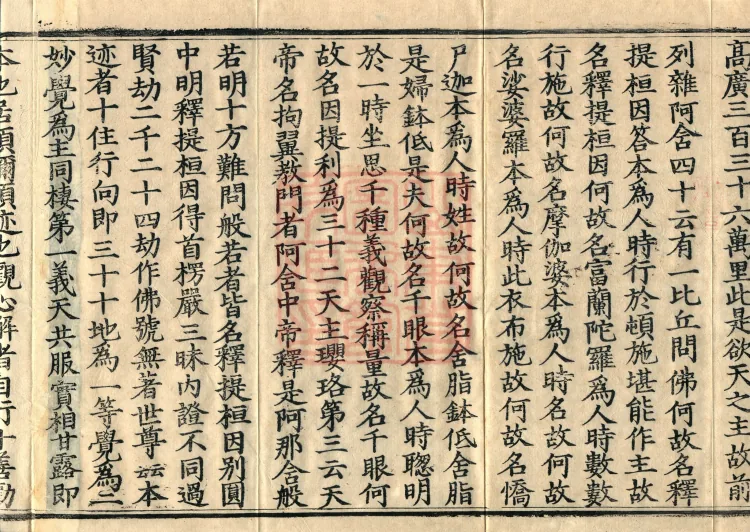 高廣三百三十六萬里此是欲天之主故前
列雜阿含四十云有一比丘問佛何故名釋
提桓因答本為人時行於頓施堪能作主故
名釋提桓因何故名富蘭陀羅為人時數數
行施故何故名摩伽婆本為人時名故何故
名娑婆羅本為人時此衣布施故何故名憍
尸迦本為人時姓故何故名舍脂鉢低舍脂
是婦鉢低是夫何故名千眼本為人時聦明
於一時坐思千種義觀察稱量故名千眼何
故名因提利為三十二天主瓔珞第三云天
帝名拘翼教門者阿含中帝釋是阿那含般
若明十方難問般若者皆名釋提桓因別圓
中明釋提桓因得首楞嚴三昧內證不同過
賢劫二千二十四劫作佛號無著世尊云云本
迹者十住行向即三十十地為一等覺為二
妙覺為主同棲第一義天共服實相甘露即
本也居須彌頂迹也觀心解者自行十善勸